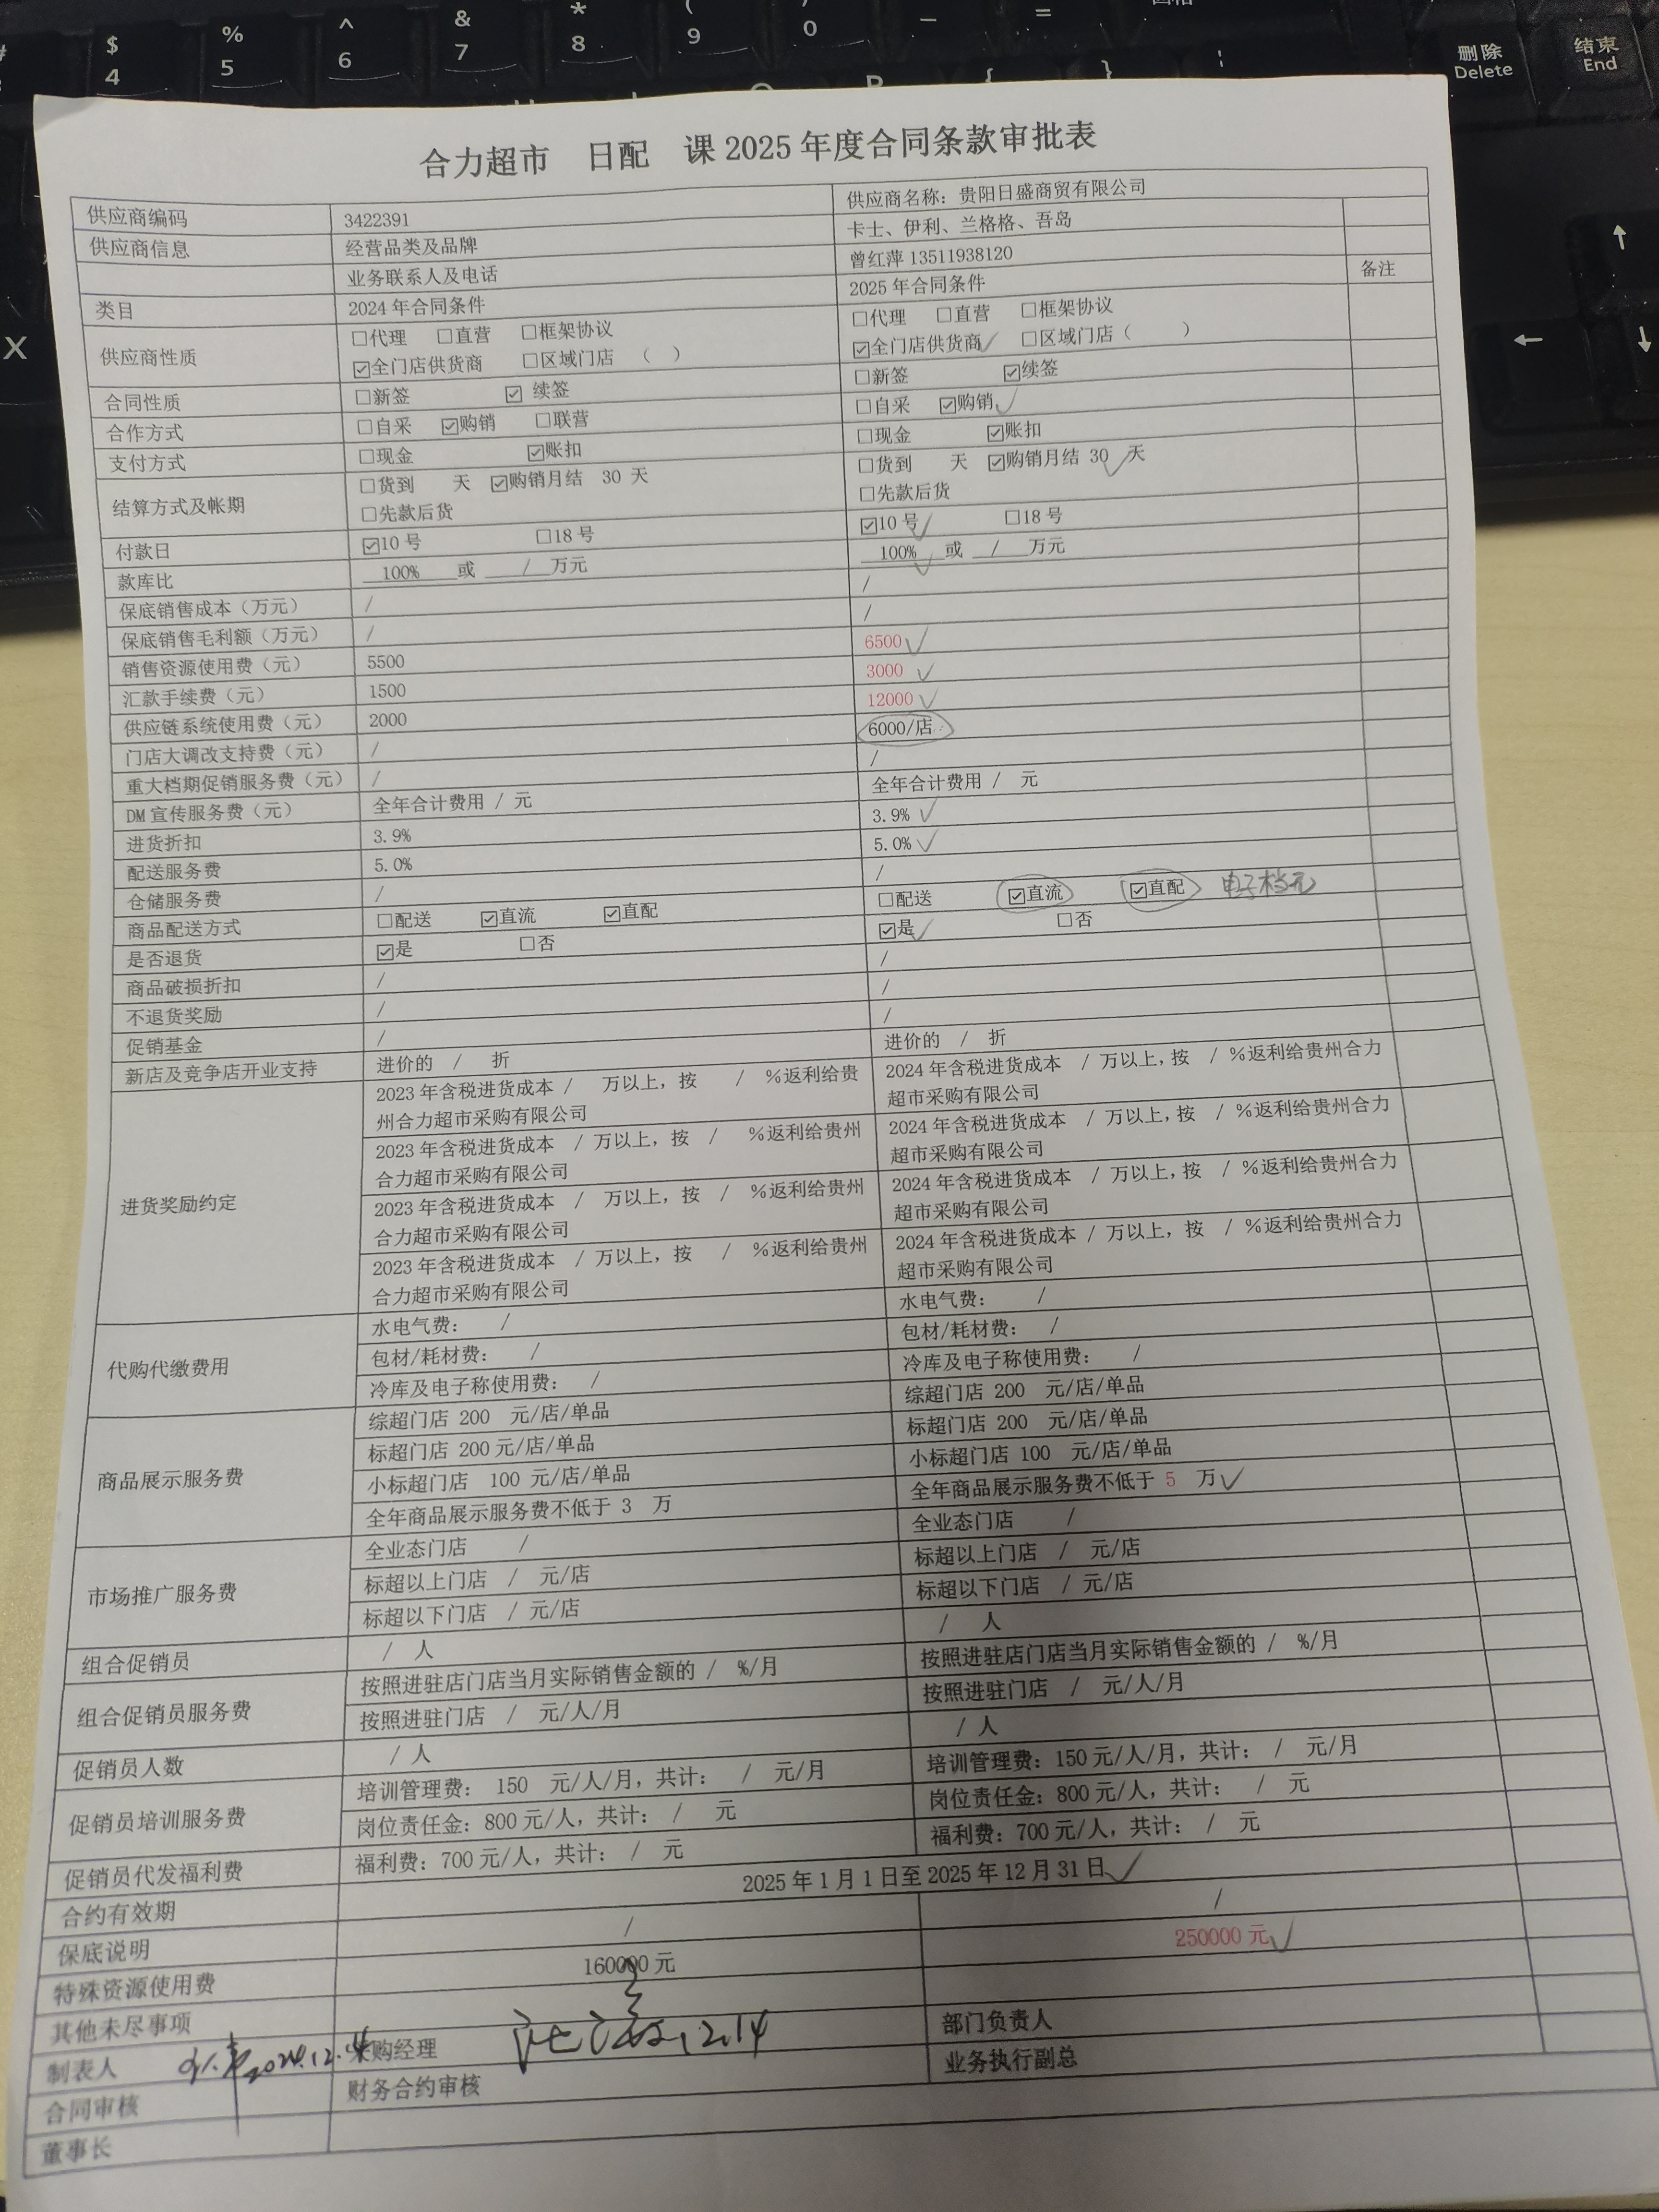 $ 4
% 5
^ 6
& 7
* 8
( 9
) 0
删除 Delete
结束 End
X
合力超市 日配 课 2025 年度合同条款审批表
供应商编码 3422391 供应商名称：贵阳日盛商贸有限公司
供应商信息 经营品类及品牌 卡士、伊利、兰格格、吾岛
业务联系人及电话 曾红萍 13511938120
类目 2024 年合同条件 2025 年合同条件 备注
供应商性质 □代理 □直营 □框架协议 □代理 □直营 □框架协议
☑全门店供货商 □区域门店 （ ） ☑全门店供货商 □区域门店（ ）
合同性质 □新签 ☑ 续签 □新签 ☑续签
合作方式 □自采 ☑购销 □联营 □自采 ☑购销
支付方式 □现金 ☑账扣 □现金 ☑账扣
结算方式及帐期 □货到 天 ☑购销月结 30 天 □货到 天 ☑购销月结 30 天
□先款后货 □先款后货
付款日 ☑10 号 □18 号 ☑10 号 □18 号
款库比 100% 或 / 万元 100% 或 / 万元
保底销售成本（万元） / /
保底销售毛利额（万元） / /
销售资源使用费（元） 5500 6500
汇款手续费（元） 1500 3000
供应链系统使用费（元） 2000 12000
门店大调改支持费（元） / 6000/店
重大档期促销服务费（元） / /
DM 宣传服务费（元） 全年合计费用 / 元 全年合计费用 / 元
进货折扣 3.9% 3.9%
配送服务费 5.0% 5.0%
仓储服务费 / /
商品配送方式 □配送 ☑直流 ☑直配 □配送 ☑直流 ☑直配 电子档无
是否退货 ☑是 □否 ☑是 □否
商品破损折扣 / /
不退货奖励 / /
促销基金 / /
新店及竞争店开业支持 进价的 / 折 进价的 / 折
进货奖励约定 2023 年含税进货成本 / 万以上，按 / %返利给贵 2024 年含税进货成本 / 万以上，按 / %返利给贵州合力
州合力超市采购有限公司 超市采购有限公司
2023 年含税进货成本 / 万以上，按 / %返利给贵州 2024 年含税进货成本 / 万以上，按 / %返利给贵州合力
合力超市采购有限公司 超市采购有限公司
2023 年含税进货成本 / 万以上，按 / %返利给贵州 2024 年含税进货成本 / 万以上，按 / %返利给贵州合力
合力超市采购有限公司 超市采购有限公司
2023 年含税进货成本 / 万以上，按 / %返利给贵州 2024 年含税进货成本 / 万以上，按 / %返利给贵州合力
合力超市采购有限公司 超市采购有限公司
代购代缴费用 水电气费： / 水电气费： /
包材/耗材费： / 包材/耗材费： /
冷库及电子称使用费： / 冷库及电子称使用费： /
商品展示服务费 综超门店 200 元/店/单品 综超门店 200 元/店/单品
标超门店 200 元/店/单品 标超门店 200 元/店/单品
小标超门店 100 元/店/单品 小标超门店 100 元/店/单品
全年商品展示服务费不低于 3 万 全年商品展示服务费不低于 5 万
市场推广服务费 全业态门店 / 全业态门店 /
标超以上门店 / 元/店 标超以上门店 / 元/店
标超以下门店 / 元/店 标超以下门店 / 元/店
组合促销员 / 人 / 人
组合促销员服务费 按照进驻店门店当月实际销售金额的 / %/月 按照进驻店门店当月实际销售金额的 / %/月
按照进驻门店 / 元/人/月 按照进驻门店 / 元/人/月
促销员人数 / 人 / 人
促销员培训服务费 培训管理费： 150 元/人/月，共计： / 元/月 培训管理费：150 元/人/月，共计： / 元/月
岗位责任金：800 元/人，共计： / 元 岗位责任金：800 元/人，共计： / 元
促销员代发福利费 福利费：700 元/人，共计： / 元 福利费：700 元/人，共计： / 元
合约有效期 2025 年 1 月 1 日至 2025 年 12 月 31 日
保底说明 / /
特殊资源使用费 160000 元 250000 元
其他未尽事项
制表人 2024.12.14 采购经理 12.14 部门负责人
合同审核 财务合约审核 业务执行副总
董事长